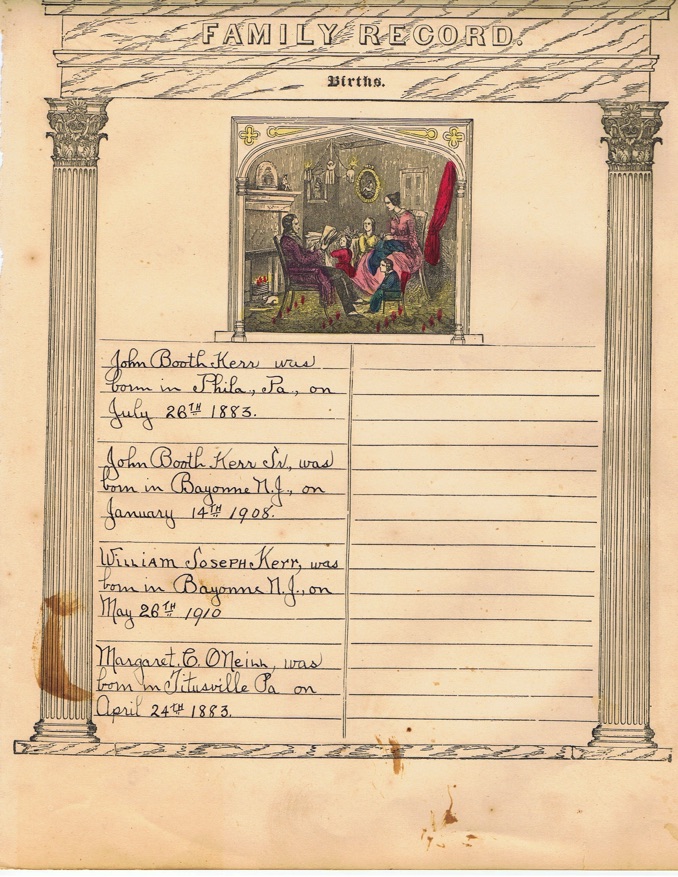 FAMILY RECORD.
Births.
John Booth Kerr was
born in Phila., Pa., on
July 26TH 1883.
John Booth Kerr Jr, was
born in Bayonne N.J., on
January 14TH 1908.
William Joseph Kerr, was
born in Bayonne N.J., on
May 26TH 1910
Margaret. C. ONeill, was
born in Titusville Pa on
April 24TH 1883.